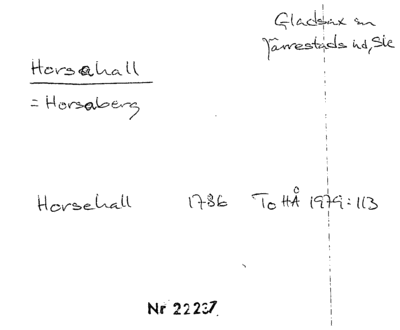 Gladsax sn
Järrestads hd, Sk
Horsahall
= Horsaberg
Horsehall 1786 ToHÅ 1979:113
Nr 22237